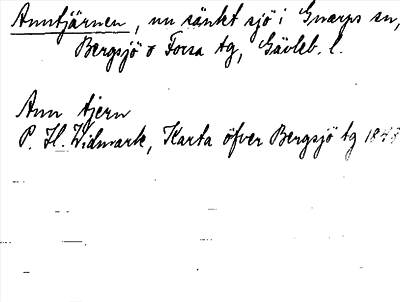 Anntjärnen, nu sänkt sjö i Gnarps sn,
Bergsjö o Forsa tg, Gävleb. l.
Ann tjern
P. H. Widmark, Karta öfver Bergsjö tg